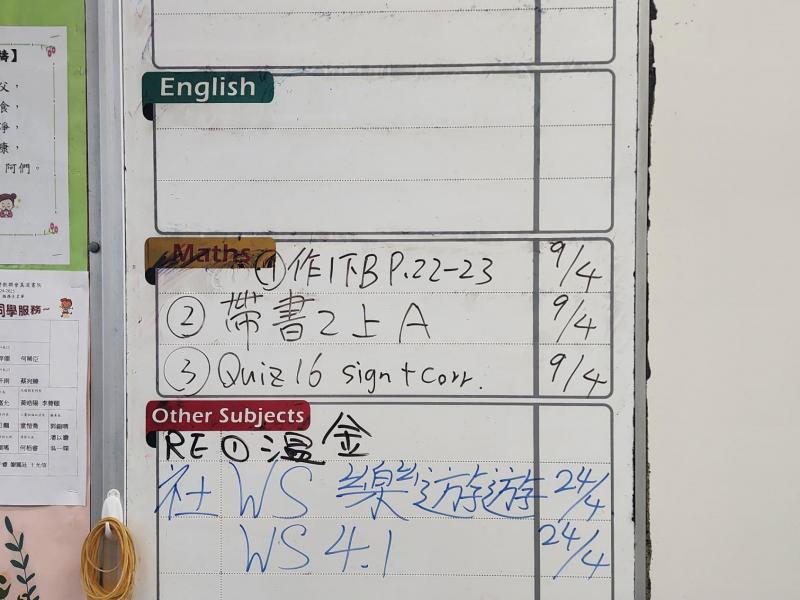 English
Maths
① 作1下B P.22-23 9/4
② 帶書2上A 9/4
③ Quiz 16 sign + corr. 9/4
Other Subjects
RE ① 溫金
社 WS 樂遊遊 24/4
WS 4.1 24/4
父，
食，
淨，
康，
阿們。
同學服務~
何稀臣
黃皓陽 李譽頤